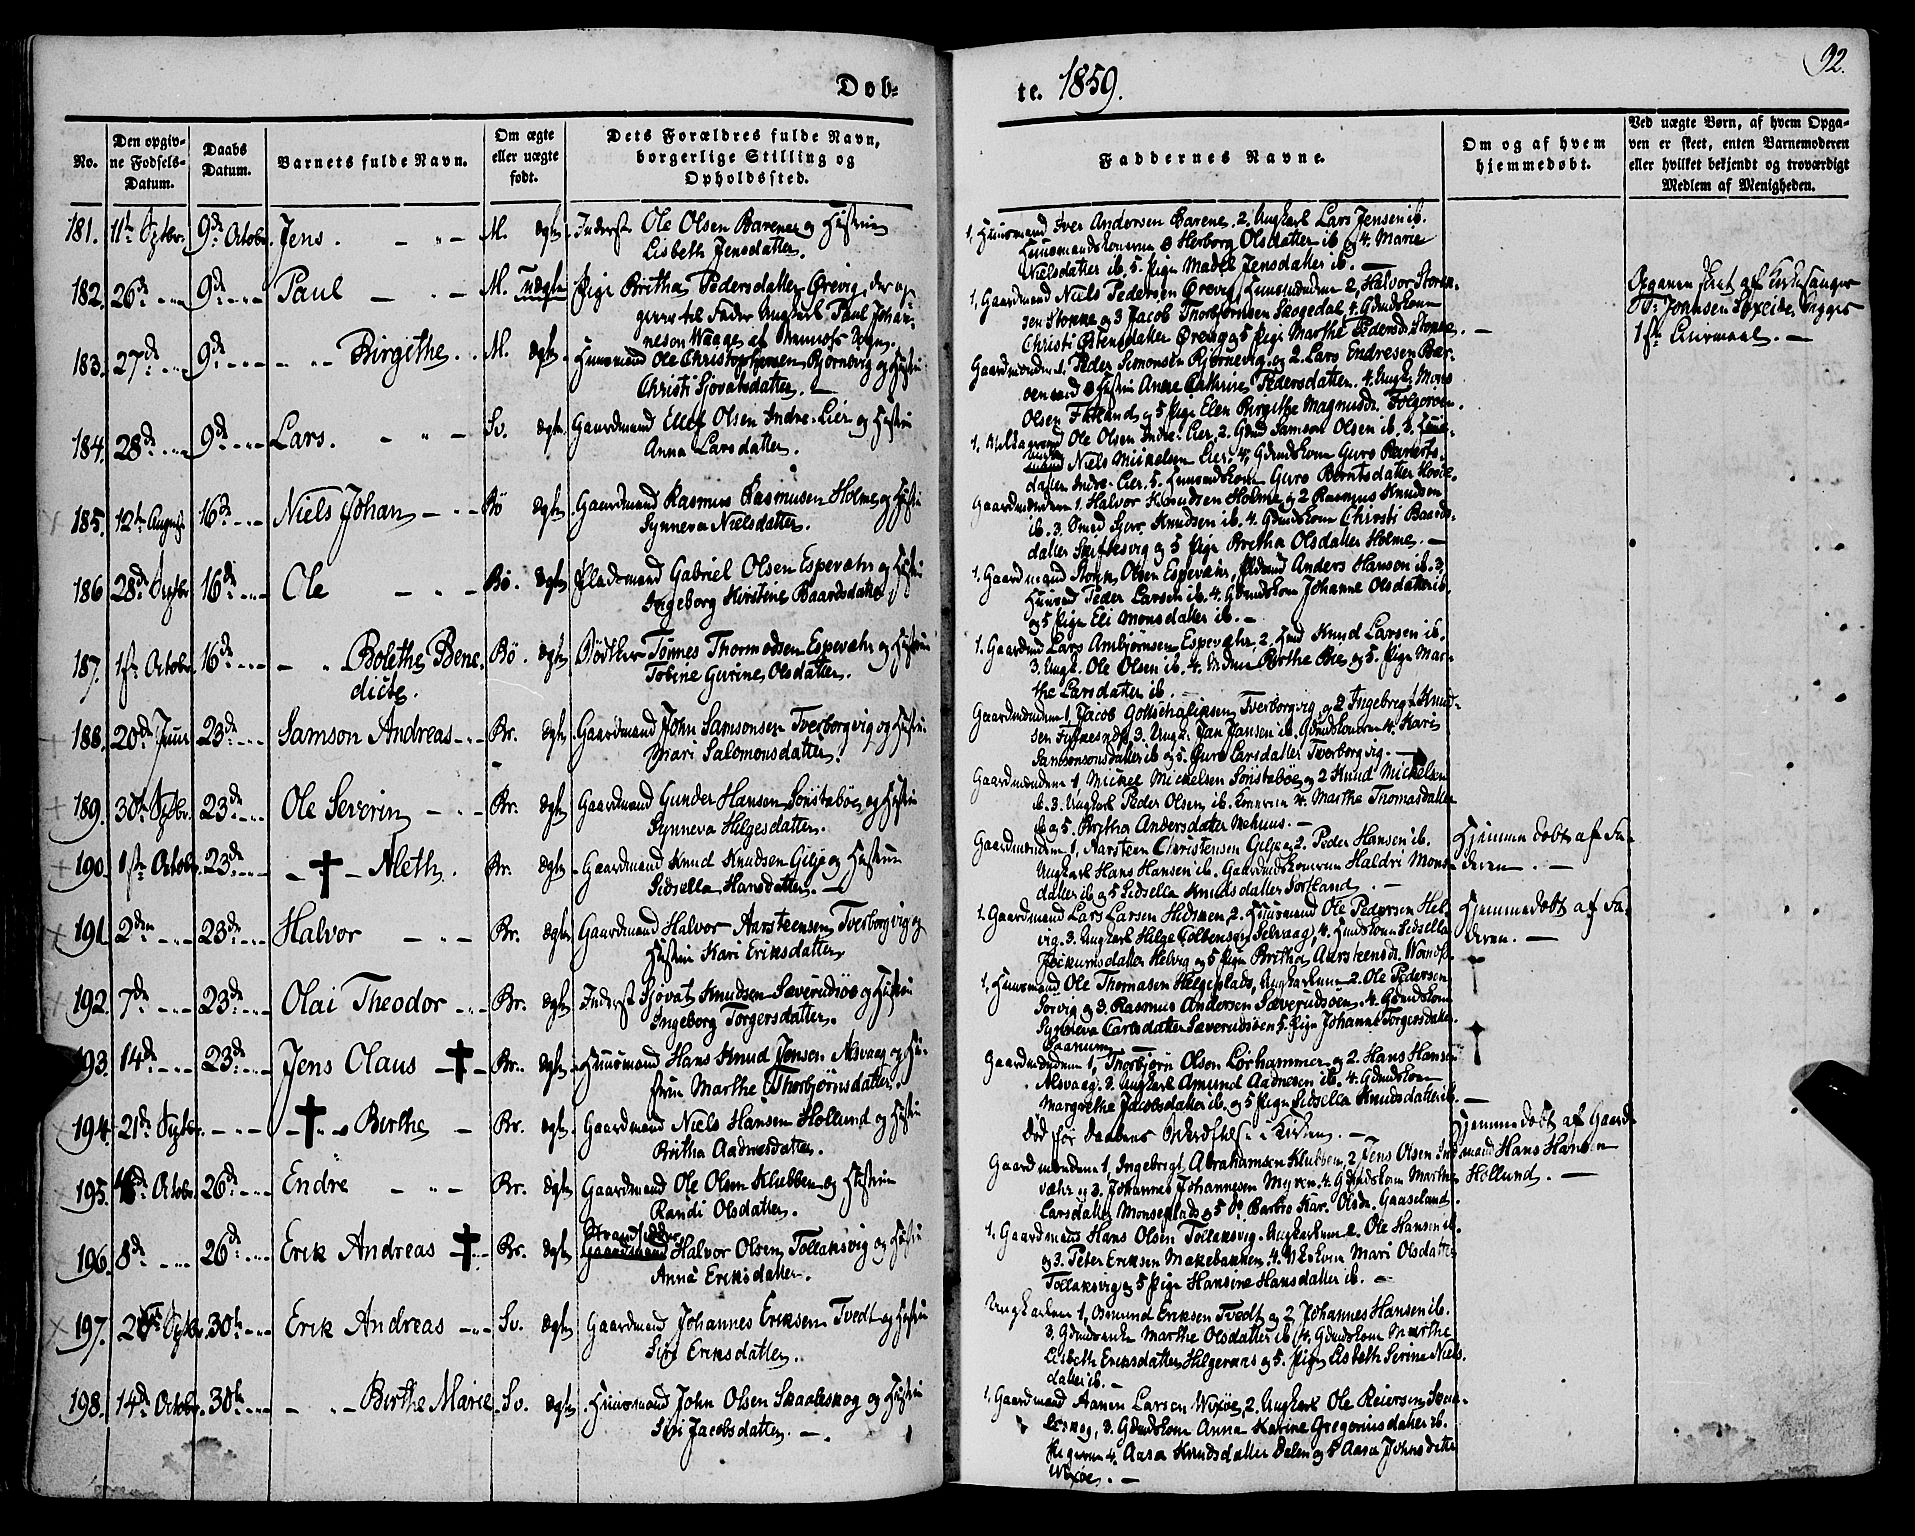 Døb-
te. 1859.
92.
No.
Den opgiv-
ne Fødsels-
Datum.
Daabs
Datum.
Barnets fulde Navn.
Om ægte
eller uægte
født.
Dets Forældres fulde Navn,
borgerlige Stilling og
Opholdssted.
Faddernes Navne.
Om og af hvem
hjemmedøbt.
Ved uægte Børn, af hvem Opga-
ven er skeet, enten Barnemoderen
eller hvilket bekjendt og troværdigt
Medlem af Menigheden.
181. 11te Septbr. 9de Octobr. Jens. M. Ægte Inderst Ole Olsen Barene og Hustru
Lisbeth Jensdatter.
1, Huusmand Iver Andersen Barene, 2. Ungkarl Lars Jensen ib.
Huusmandskonerne 3 Herborg Olsdatter ib og 4. Marie
Nielsdatter ib. 5. Pige Madel Jensdatter ib.
182. 26de 9de Paul M. Uægte Pige Britha Pedersdatter Ørevig, der op-
givne til Fader Ungkarl Paul Johan-
neson Waage af
1, Gaardmand Niels Pedersen Ørevig, Huusmændene 2, Halvor Stokke-
sen Stokke og 3 Jacob Thorbjørnsen Skogedal, 4. Gdmdskone
Christi Østensdatter Ørevig og 5 Pige Marthe Pedersd. Stokke.
Opgaven skeet af Kirkesanger
T. Johnsen
1ste Leiermaal.
183. 27de 9de Birgithe M. Ægte Huusmand Ole Christophersen Bjørnevig og Hustru
Christi Sjovatsdatter.
Gaardmændene 1, Peder Simonsen Bjørnevig og 2. Lars Endresen Bær-
øen med 3 Hustru Anne Cathrine Pedersdatter. 4. Ungk. Mons
Olsen Fatland og 5 Pige Elen Birgithe Magnusd. Folgerøen.
184. 28de 9de Lars. Sv. Ægte Gaardmand Ellef Olsen Indre-Eier og Hustru
Anna Larsdatter.
1, Ole Olsen Indre-Eier, 2. Gdmd Samson Olsen ib. 3. Huus-
mand Niels Mickelsen Eier, 4, Gdmdskone Guro Bernts-
datter Indre-Eier, 5. Huusmdskone Guro Berntsdatter Hovde.
185. 12te August 16de Niels Johan Bø Ægte Gaardmand Rasmus Rasmusen Holme og Hustru
Synneva Nielsdatter.
Gaardmændene 1. Halvor Knudsen Holme og 2 Rasmus Knudsen
ib. 3. Smed Sjur Knudsen ib. 4. Gdmdskone Christi Baards-
datter Skiftesvig og 5 Pige Britha Olsdatter Holme.
186 28de Septbr 16de Ole Bø. Ægte Pladsmand Gabriel Olsen Espevæhr og Hustru
Ingeborg Kirstine Baardsdatter.
1. Gaardmand Stork Olsen Espevæhr, Anders Hansen ib. 3.
Huusmd Peder Larsen ib. 4. Gdmdskone Johanne Olsdatter ib.
og 5 Pige Eli Monsdatter ib.
187. 1ste Octobr 16de Bolethe Bene-
dicte. Bø. Ægte Bødtker Tønnes Thormodsen Espevæhr og Hustru
Tobine Gurine Olsdatter.
1. Gaardmd Lars Ambjørnsen Espevæhr, 2. Knud Larsen ib.
3. Ungk. Ole Olsen ib. 4. Birthe Bie og 5. Pige Mar-
the Larsdatter ib.
188. 20de Juni 23de Samson Andreas Br. Ægte Gaardmand John Samsonsen Tverborgvig og Hustru
Mari Salomonsdatter.
Gaardmændene 1, Jacob Gottschalksen Tverborgvig og 2 Ingebregt Knud-
sen 3. Ungk. Jan Jansen ib. Gdmdskonerne 4. Kari
Samsonsdatter ib og 5. Guro Larsdatter Tverborgvig.
189. 30te Septbr. 23de Ole Severin Br. Ægte Gaardmand Gunder Hansen Sønstabøe og Hustru
Synneva Helgesdatter.
Gaardmændene 1, Mickel Mickelsen Sønstabøe og 2 Knud Mickelsen
ib. 3. Ungkarl Peder Olsen ib. Konerne 4. Marthe Thomasdatter
ib og 5. Britha Andersdatter Mehuus.
190. 1ste Octobr. 23de Aleth. Br. Ægte Gaardmand Knud Knudsen Gilje og Hustru
Sidsella Hansdatter.
Gaardmændene 1, Aarsteen Christensen Gilje og 2. Peder Hansen ib.
Ungkarl Hans Hansen ib. Gaardmdskonerne Haldri Mons-
datter ib og 5 Sidsella Knudsdatter Sortland.
Hjemmedøbt af Fa-
deren.
191. 2den 23de Halvor Br. Ægte Gaardmand Halvor Aarsteensen Tverborgvig og
Hustru Kari Eriksdatter.
1. Gaardmand Lars Larsen 2. Huusmand Ole Pedersen Hel-
vig. 3. Ungkarl Helge Colbensen Selvaag, 4. Huusmdskone Sidsella
Jockumsdatter Helvig og 5 Pige Britha Aarsteensd.
Hjemmedøbt af Fa-
deren.
192. 7de 23de Olai Theodor Br. Ægte Inderst Sjovat Knudsen Sæverudsøe og Hustru
Ingeborg Torgersdatter.
1, Huusmand Ole Thomasen Helgeplads, Ungkarlene 2. Ole Pedersen
Sørvig og 3. Rasmus Andersen Sæverudsøen. 4. Gdmdskone
Synneva Carlsdatter Sæverudsøen 5. Pige Johanne Torgersdatter.
193. 14de 23de Jens Olaus Br. Ægte Huusmand Hans Knud Jensen Alsvaag og Hu-
strue Marthe Thorbjørnsdatter.
Gaardmændene 1, Thorbjørn Olsen Lørhammer og 2. Hans Hansen
Alsvaag. 3. Ungkarl Amund Aadnesen ib. 4. Gdmdskone
Margrethe Jacobsdatter ib. og 5 Pige Sidsella Knudsdatter ib.
194. 21de Septbr. Birthe Br. Ægte Gaardmand Niels Hansen Hollund og Hustru
Britha Aadnesdatter.
død før Daabens Bekræftelse i Kirken.
Hjemmedøbt af Gaard-
mand Hans Hansen
Hollund.
195. Octobr. 26de Endre Br. Ægte Gaardmand Ole Olsen Klubben og Hustru
Randi Olsdatter.
Gaardmændene 1, Ingebrigt Abrahamsen Klubben, 2 Jens Olsen
og 3. Johannes Johannesen Myren. 4. Gdmdskone Marthe
Larsdatter Monseplads og 5 Do. Barbro Kar. Olsd. Gaaseland.
196. 8de 26de Erik Andreas Br. Ægte Strandsidder Halvor Olsen Tollaksvig og Hustru
Anna Eriksdatter.
1. Gaardmand Hans Olsen Tollaksvig. Ungkarlene 2. Ole Hansen ib.
og 3. Peter Eriksen Makebakken. 4. Mari Olsdatter
Tollaksvig og 5 Pige Hansine Hansdatter ib.
197. Septbr 30te Erik Andreas Sv. Ægte Gaardmand Johannes Eriksen Tvedt og Hustru
Siri Eriksdatter.
Ungkarlene 1, Osmund Eriksen Tvedt og 2 Johannes Hansen ib.
3. Gdmdsenke Marthe Olsdatter ib. 4. Gdmdskone Marthe
Lisbeth Eriksdatter Helgevans og 5. Pige Lisbeth Serine Niels-
datter ib.
198. 14de Octobr. 30te Birthe Marie Sv. Ægte Huusmand John Olsen Skaaleskog og Hustru
Siri Jacobsdatter.
1. Gaardmand Aanen Larsen Wixøe, 2. Ungkarl Ole Reiersen Skaa-
leskog, 3. Gdmdskone Anna Karine Gregoriusdatter ib.
Pigerne 4. Aasa Knudsdatter Dalen og 5 Aasa Johnsdatter
Wixøe.